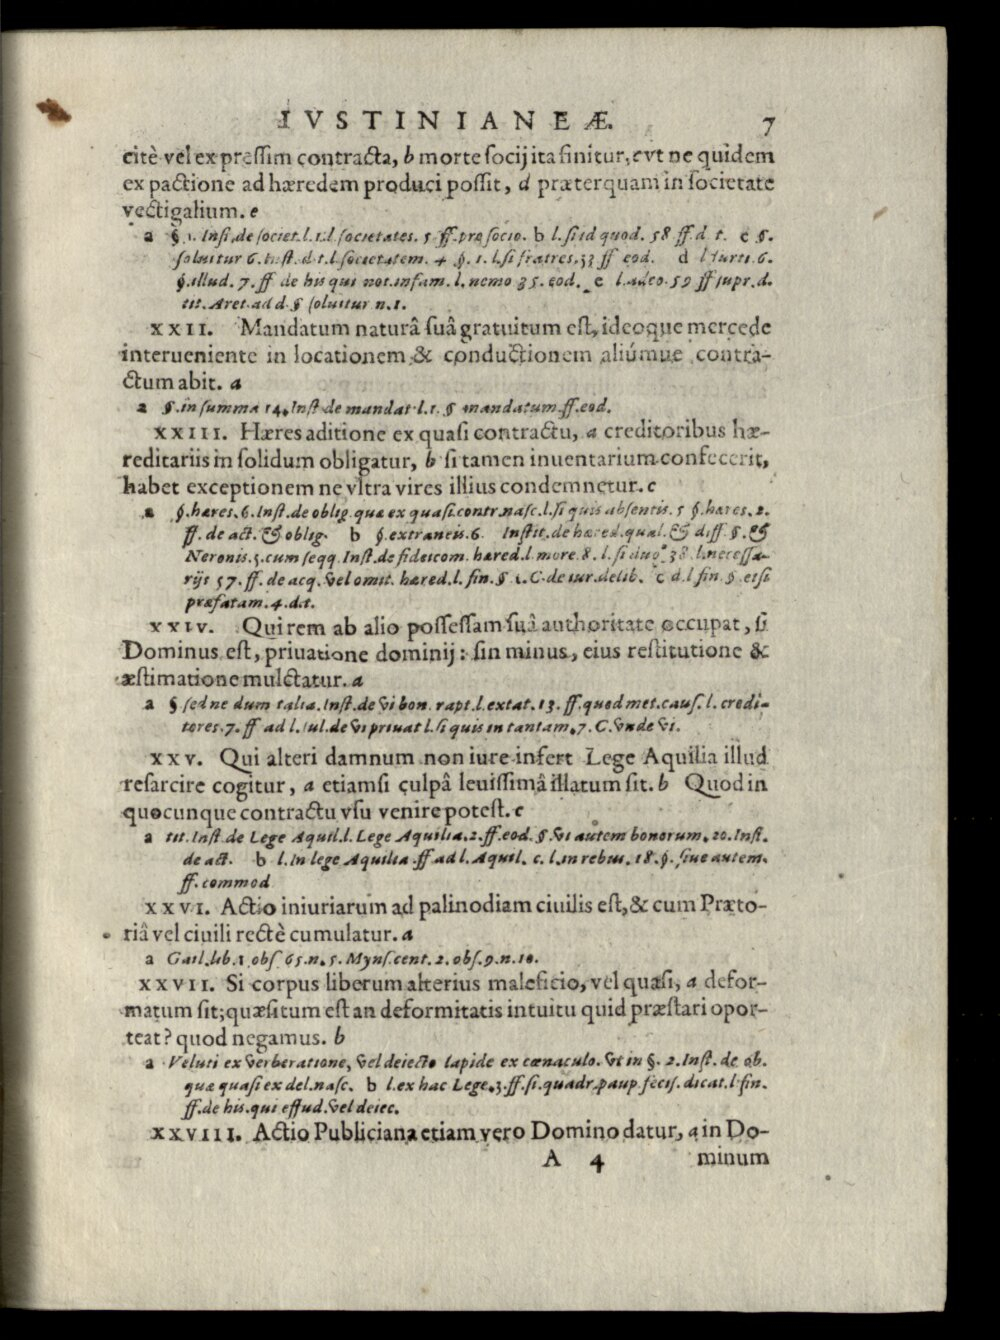 IVSTINIANEÆ. 7
citè vel expressim contracta, b morte socij ita finitur, c vt ne quidem
ex pactione ad hæredem produci possit, d præterquam in societate
vectigalium. e
a §. 1. Insi. de societ. l. 1. l. societates. 5 ff. pro socio. b l. si id quod. 58 ff. d t. c §.
soluitur 6. Inst. d. t. l. societatem. 4 §. 1. l. si fratres. 53 ff eod. d l furti. 6.
§. illud. 7. ff de his qui not. infam. l. nemo 35. eod. e l. adeo. 59 ff supr. d.
tit. Aret. ad d. § soluitur n. 1.
XXII. Mandatum naturâ suâ gratuitum est, ideoque mercede
interueniente in locationem & conductionem aliúmue contra-
ctum abit. a
a §. in summa 14. Inst de mandat. l. 1. § mandatum. ff. eod.
XXIII. Hæres aditione ex quasi contractu, a creditoribus hæ-
reditariis in solidum obligatur, b si tamen inuentarium confecerit,
habet exceptionem ne vltra vires illius condemnetur. c
a §. hæres. 6. Inst. de oblig. quæ ex quasi. contr. nasc. l. si quis absentis. 5 §. hæres. 2.
ff. de act. & oblig. b §. extraneis. 6. Instit. de hæred. qual. & diff. §. &
Neronis. 3. cum seqq. Inst. de fideicom. hæred. l. more. 8. l. si duo. 38. l. necessa-
rijs 57. ff. de acq. vel omit. hæred. l. fin. § 1. C. de iur. delib. c d. l fin. §. etsi
præfatam. 4. d. t.
XXIV. Qui rem ab alio possessam suâ authoritate occupat, si
Dominus est, priuatione dominij: sin minus, eius restitutione &
æstimatione mulctatur. a
a § sed ne dum talia. Inst. de vi bon. rapt. l. extat. 13. ff. quod met. caus. l. credi-
tores. 7. ff ad l. iul. de vi priuat l. si quis in tantam. 7. C. vnde vi.
XXV. Qui alteri damnum non iure infert Lege Aquilia illud
resarcire cogitur, a etiamsi culpâ leuissimâ illatum sit. b Quod in
quocunque contractu vsu venire potest. c
a tit. Inst. de Lege Aquil. l. Lege Aquilia. 2. ff. eod. §. vi autem bonorum. 20. Inst.
de act. b l. In lege Aquilia ff ad l. Aquil. c. l. in rebus. 18. §. siue autem.
ff. commod
XXVI. Actio iniuriarum ad palinodiam ciuilis est, & cum Præto-
riâ vel ciuili rectè cumulatur. a
a Gail. lib. 1 obs 65. n. 5. Myns. cent. 2. obs. 9. n. 10.
XXVII. Si corpus liberum alterius maleficio, vel quasi, a defor-
matum sit; quæsitum est an deformitatis intuitu quid præstari opor-
teat? quod negamus. b
a Veluti ex verberatione, vel deiecto lapide ex cœnaculo. vt in §. 2. Inst. de ob.
quæ quasi ex del. nasc. b l. ex hac Lege. 3. ff. si. quadr. paup. fecis. dicat. l. fin.
ff. de his. qui effud. vel deiec.
XXVIII. Actio Publiciana etiam vero Domino datur, a in Do-
A 4 minum